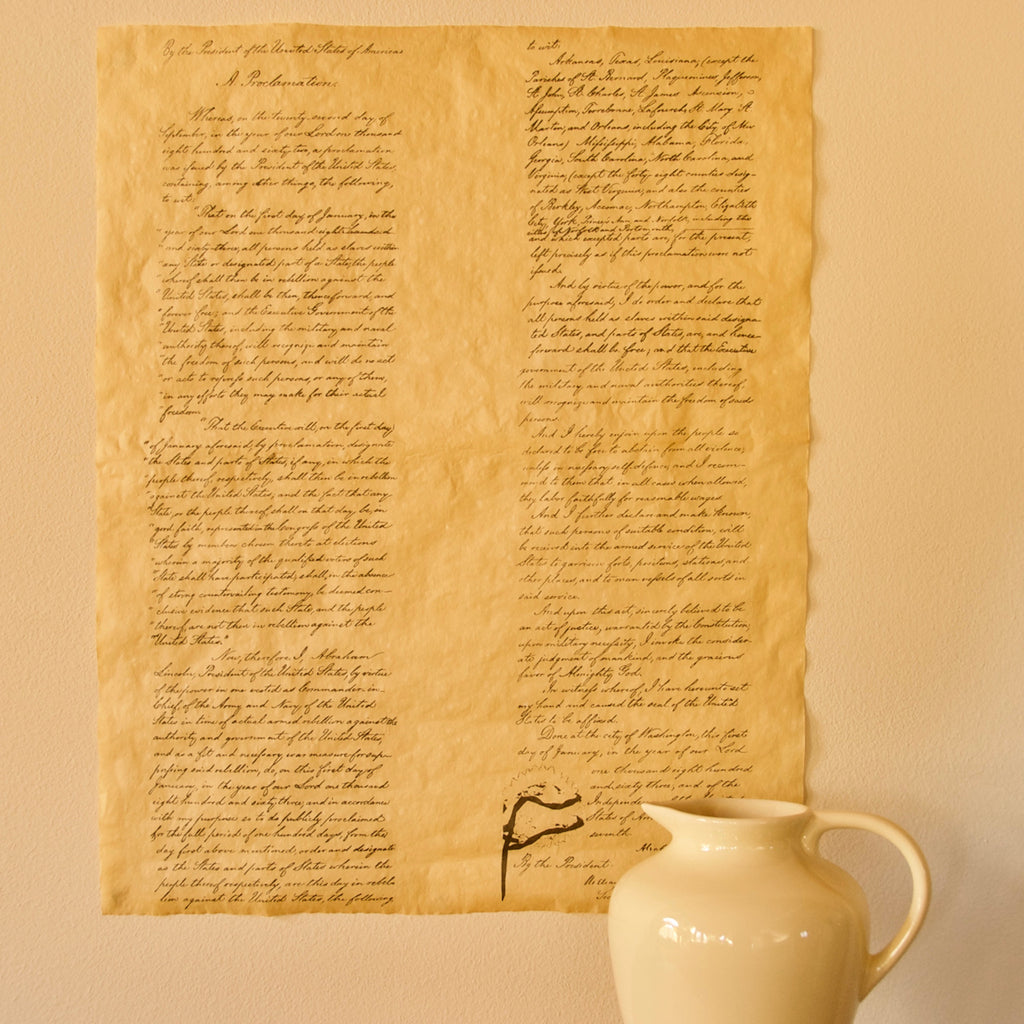 By the President of the United States of America:
A Proclamation.
Whereas, on the twenty-second day of
September, in the year of our Lord one thousand
eight hundred and sixty two, a proclamation
was issued by the President of the United States,
containing, among other things, the following,
to wit:
"That on the first day of January, in the
"year of our Lord one thousand eight hundred
"and sixty-three, all persons held as slaves within
"any State or designated part of a State, the people
"whereof shall then be in rebellion against the
"United States, shall be then, thenceforward, and
"forever free; and the Executive Government of the
"United States, including the military and naval
"authority thereof, will recognize and maintain
"the freedom of such persons, and will do no act
"or acts to repress such persons, or any of them,
"in any efforts they may make for their actual
"freedom.
"That the Executive will, on the first day
"of January aforesaid, by proclamation, designate
"the States and parts of States, if any, in which the
"people thereof, respectively, shall then be in rebellion
"against the United States; and the fact that any
"State, or the people thereof shall on that day be, in
"good faith, represented in the Congress of the United
"States by members chosen thereto at elections
"wherein a majority of the qualified voters of such
"State shall have participated, shall, in the absence
"of strong countervailing testimony, be deemed con-
"clusive evidence that such State, and the people
"thereof, are not then in rebellion against the
"United States."
Now, therefore I, Abraham
Lincoln, President of the United States, by virtue
of the power in me vested as Commander-in-
Chief, of the Army and Navy of the United
States in time of actual armed rebellion against the
authority and government of the United States,
and as a fit and necessary war measure for sup-
pressing said rebellion, do, on this first day of
January, in the year of our Lord one thousand
eight hundred and sixty three, and in accordance
with my purpose so to do publicly proclaimed
for the full period of one hundred days, from the
day first above mentioned, order and designate
as the States and parts of States wherein the
people thereof respectively, are this day in rebel-
lion against the United States, the following,
to wit:
Arkansas, Texas, Louisiana, (except the
Parishes of St. Bernard, Plaquemines, Jefferson,
St. John, St. Charles, St. James Ascension,
Assumption, Terrebonne, Lafourche, St. Mary, St.
Martin, and Orleans, including the City of New
Orleans) Mississippi, Alabama, Florida,
Georgia, South Carolina, North Carolina, and
Virginia, (except the forty-eight counties desig-
nated as West Virginia, and also the counties
of Berkley, Accomac, Northampton, Elizabeth
City, York, Princess Ann, and Norfolk, including the
cities of Norfolk and Portsmouth,
and which excepted parts are, for the present,
left precisely as if this proclamation were not
issued.
And by virtue of the power, and for the
purpose aforesaid, I do order and declare that
all persons held as slaves within said designa-
ted States, and parts of States, are, and hence-
forward shall be free; and that the Executive
government of the United States, including
the military and naval authorities thereof,
will recognize and maintain the freedom of said
persons.
And I hereby enjoin upon the people so
declared to be free to abstain from all violence,
unless in necessary self-defence; and I recom-
mend to them that, in all cases when allowed,
they labor faithfully for reasonable wages.
And I further declare and make known,
that such persons of suitable condition, will
be received into the armed service of the United
States to garrison forts, positions, stations, and
other places, and to man vessels of all sorts in
said service.
And upon this act, sincerely believed to be
an act of justice, warranted by the Constitution,
upon military necessity, I invoke the consider-
ate judgment of mankind, and the gracious
favor of Almighty God.
In witness whereof, I have hereunto set
my hand and caused the seal of the United
States to be affixed.
Done at the city of Washington, this first
day of January, in the year of our Lord
one thousand eight hundred
and sixty three, and of the
Independence
States of
seventh.
By the President: